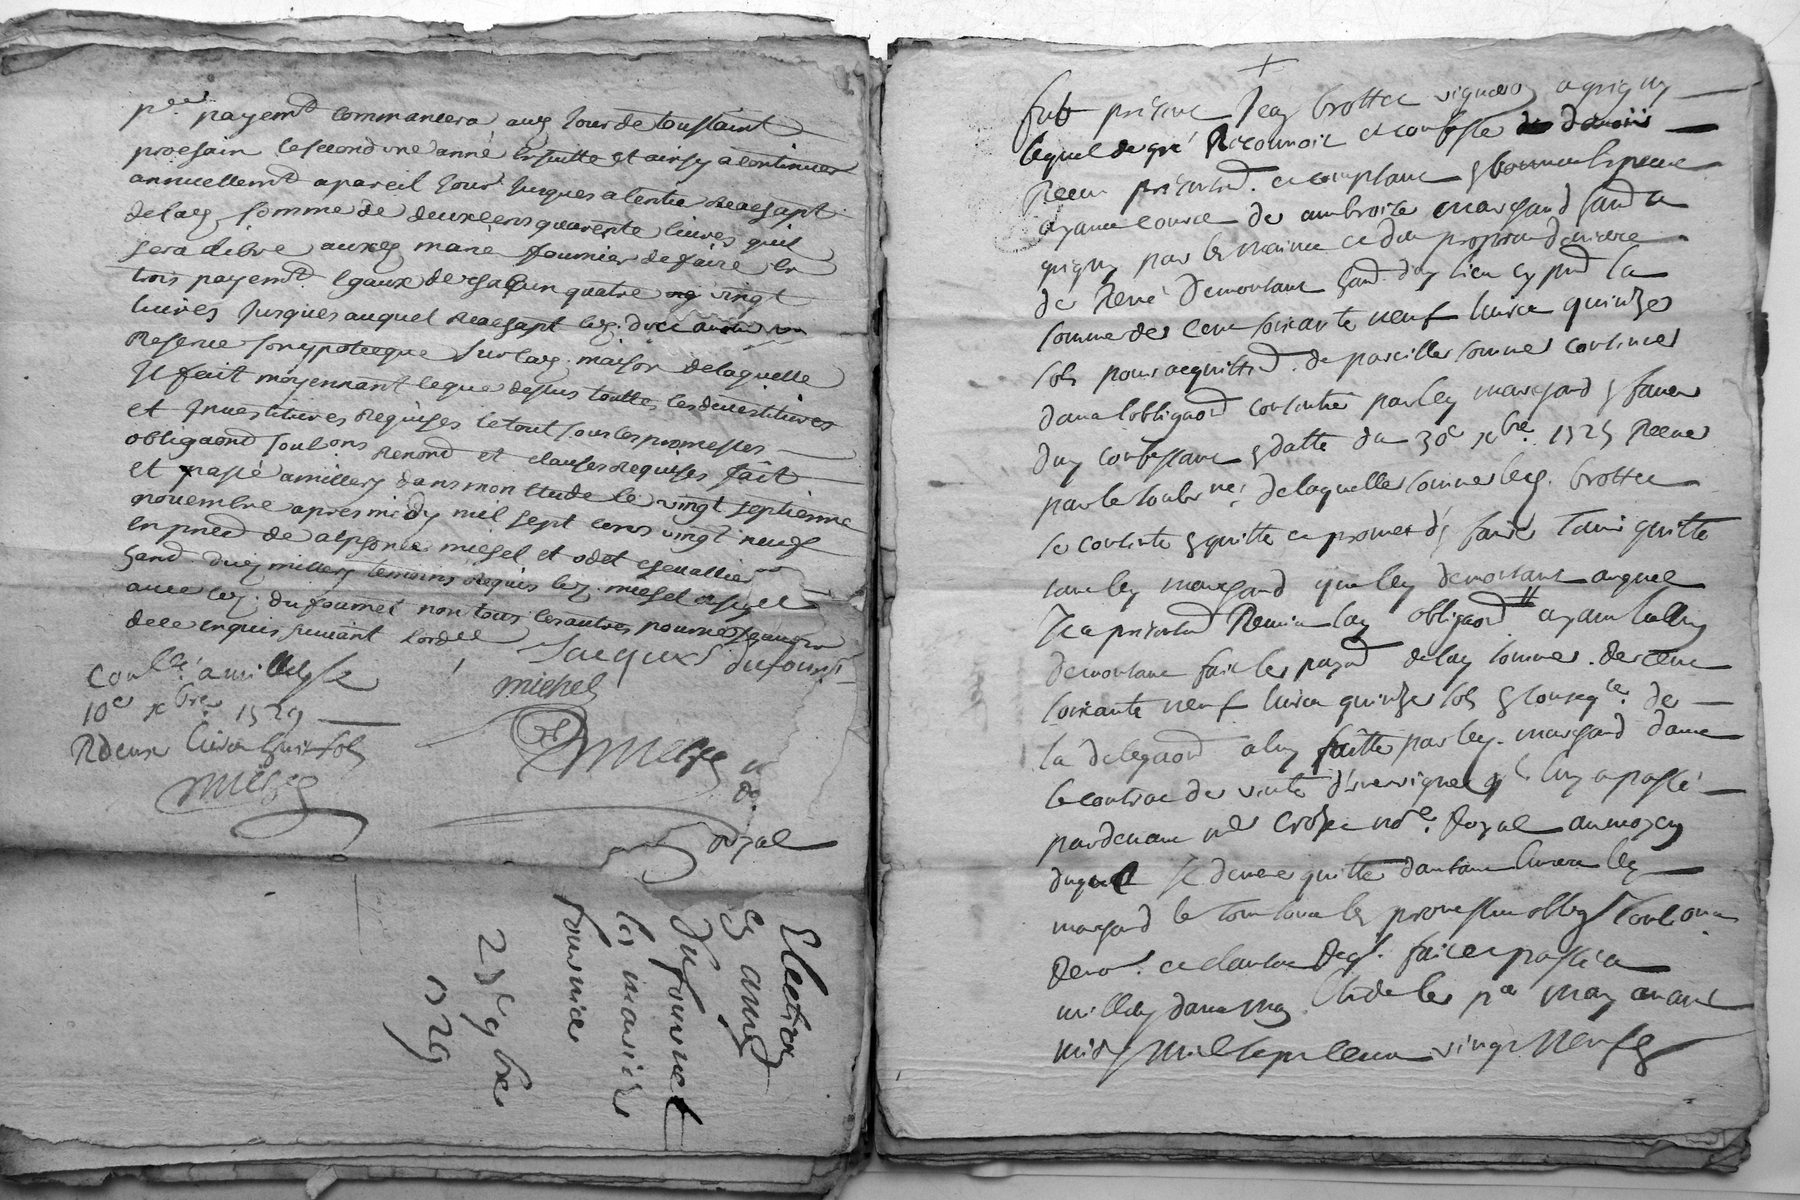 p.er payemt commancera aud Jour de toussaint
prochain le second une anné ensuitte et ainsy a continuer
annuellemt a pareil Jour Jusques a lentie reachapt
delad somme de deux cens quarente livres quil
sera libre auxd mariés fournier de faire en
trois payemt egaux de chacun quatre vingt
livres Jusques auquel reachapt led.
Reserve son ypotecque sur lad. maison de laquelle
Il fait moyennant le que dessus touttes les devestitures
et Investitures requises le tout sous les promesses
obligaons soubons renond et clauses requises fait
et passé a millery dans mon Etude le vingt septienne
novembre apres midy mil sept cens vingt neuf
en pred de alphonce michel et odet chevallier
hand dud millery temoins requis led. michel a signé
avec led. du fournel non tous les autres pour ne scavoir
de ce enquis suivant lord
Jacques dufournel
michel
Conllé a millery le
10e xbre 1729
R deux livres huit sols
Royal
Election
en amy
Du fournel
les mariés
fournier
27e 9bre
1729
fut présent Jean brottet vigneron a grigny
lequel de gré Reconnoit et confesse davoir
Receu presentemt. et comptant
ayant cause de ambroise marchand hand a
grigny par les mains et des propres deniers
de René Demontant hand dud lieu cy pnt la
somme de cent soixante neuf livres quinze
sols pour acquittemt. de pareille somme contenue
dans lobligaon consentie par led marchand en faveur
dud confessant en datte du 30e xbre 1725 Receue
par le soubsné de laquelle somme led. brottet
se contente en quitte et promet den faire tenir quitte
tant led marchand que led demontant auquel
Il a presentemt Remis lad obligaon ayant led
demontant fait le payemt delad somme de cent
soixante neuf livres quinze sols en conseqce de
la delegaon a luy faitte par led. marchand dans
le contrac de vente dheritages quil luy a passé
pardevant me Crozet nore. Royal au moyen
duquel Il demeure quitte dautant envers led
marchand le tout sous les promesses oblig soubons
Renon. et clauses Reqs. fait et passé a
millery dans mon Etude le per may avant
midy mil sept cens vingt neuf